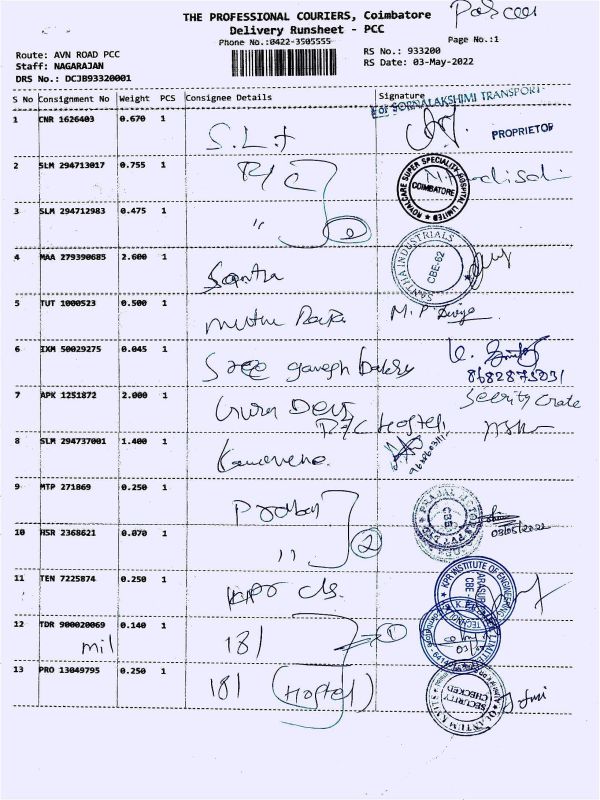 THE PROFESSIONAL COURIERS, Coimbatore
Delivery Runsheet - PCC
Phone No.:0422-3505555
Page No.:1
Route: AVN ROAD PCC
Staff: NAGARAJAN
DRS No.: DCJB93320001
RS No.: 933200
RS Date: 03-May-2022
S No Consignment No Weight PCS Consignee Details Signature
For SORNALAKSHIMI TRANSPORT
1 CNR 1626403 0.670 1 S.L.t
PROPRIETOR
2 SLM 294713017 0.755 1 R/C
ROYALCARE SUPER SPECIALITY HOSPITAL LIMITED
COIMBATORE
3 SLM 294712983 0.475 1 "
4 MAA 279390685 2.600 1 Santha
SANTHA INDUSTRIALS
CBE-62
5 TUT 1000523 0.500 1 M.P.
6 IXM 50029275 0.045 1 Sree ganesh bakery
8682875031
7 APK 1251872 2.000 1 Guru Dev
P/C Hostel
8 SLM 294737001 1.400 1
9 MTP 271869 0.250 1
CBE
10 HSR 2368621 0.870 1 "
2
03/05/2022
11 TEN 7225874 0.250 1 KPR cls.
KPR INSTITUTE OF ENGINEERING
12 TDR 900020069 0.140 1 181
mil
1
13 PRO 13049795 0.250 1 181 (Hostel)
SECURITY
CHECKED